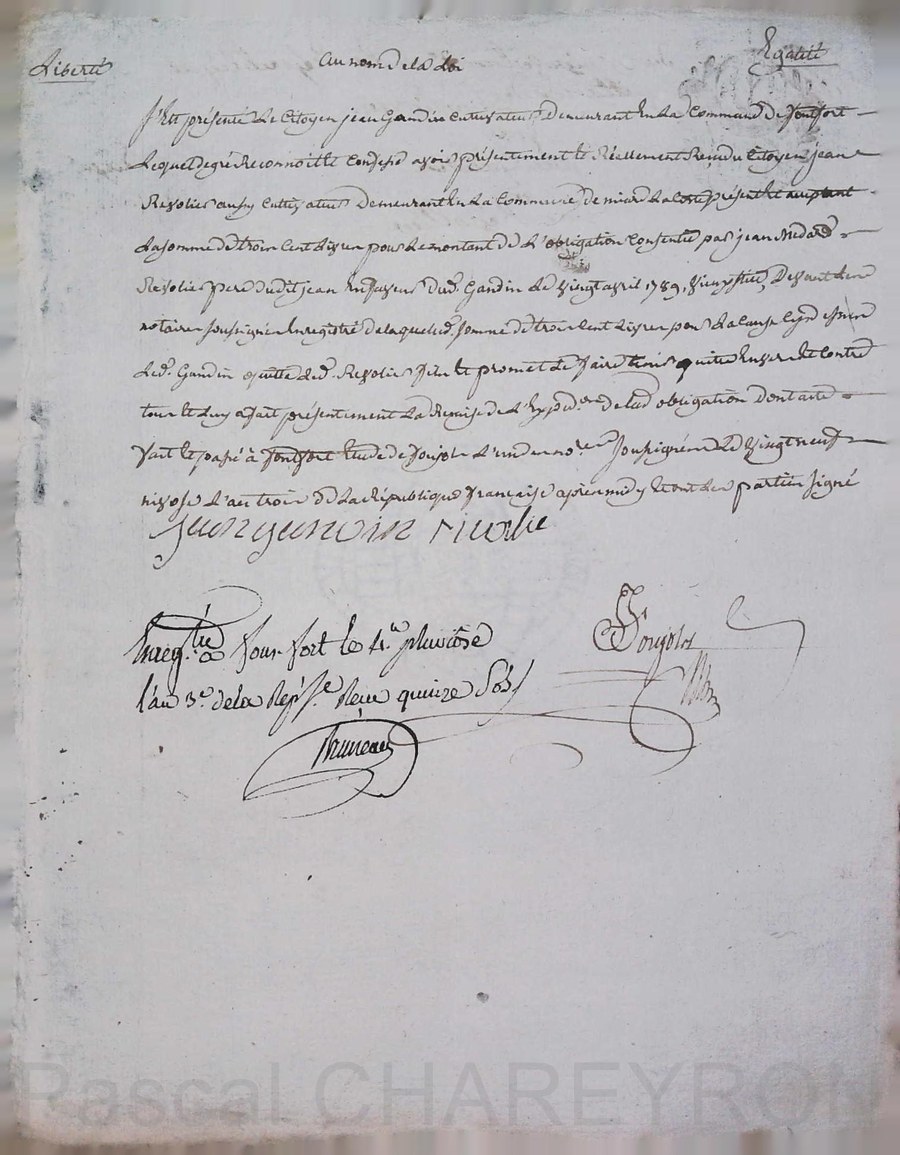 Liberté au nom de la Loi Egalité
S'est présenté le Citoyen jean Gandin cultivateur demeurant en la Commune de fonfort
Lequel de gré Reconnoit et confesse avoir présentement et Réellement Reçu du Citoyen jean
Rivolier aussy cultivateur demeurant en la Commune de présent et acceptant
La somme de trois Cent Livres pour le montant de L'obligation Consentie par jean Medard
Rivolier pere dudit jean Enfaveur dud. Gandin Le vingt avril 1789, vieux stile, devant Le
notaire soussigné Enregistré de laquelle d. somme de trois Cent Livres pour la cause Cydessus
Led. Gandin quitte Led. Rivolier fils et promet Le faire tenir quitte Envers et Contre
tous et Luy a fait présentement La Remise de L'Expedon de lad obligation Dont acte
fait et passé à fontfort Etude de Soujols L'un des nores soussignés Le vingt neuf
nivose L'an trois de La République française après midy Et ont Les parties signé
jean gandin rivolie
Enregtré a fonfort le 4.e pluviose
l'an 3.e de la Rep. f.se Reçu quinze Sols
Soujols
Nre
Bruneau
Pascal CHAREYRON